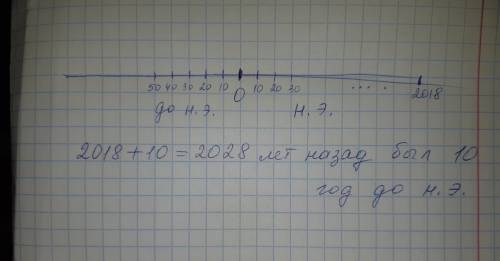 50 40 30 20 10 0 10 20 30 .... 2018
до н.э. н.э.
2018+10=2028 лет назад был 10
год до н.э.